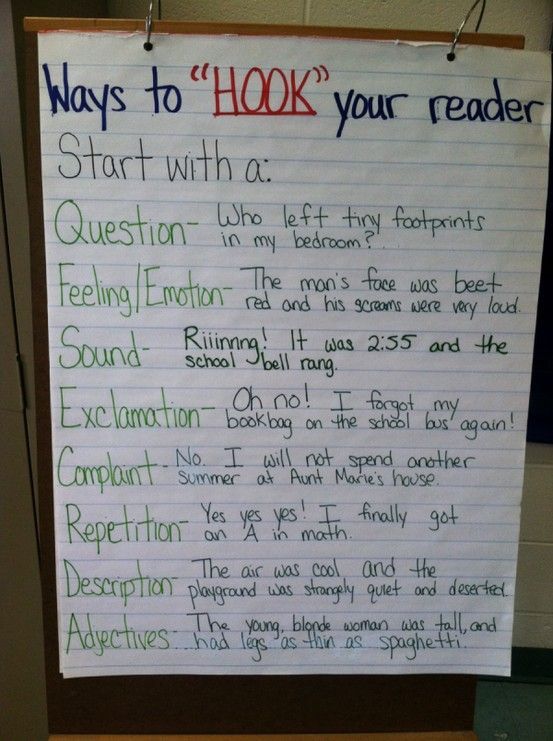 Ways to "HOOK" your reader
Start with a:
Question- Who left tiny footprints
in my bedroom?
Feeling/Emotion- The man's face was beet
red and his screams were very loud.
Sound- Riiinnng! It was 2:55 and the
school bell rang.
Exclamation- Oh no! I forgot my
bookbag on the school bus again!
Complaint- No. I will not spend another
summer at Aunt Marie's house.
Repetition- Yes yes yes! I finally got
an A in math.
Description- The air was cool and the
playground was strangely quiet and deserted.
Adjectives- The young, blonde woman was tall, and
had legs as thin as spaghetti.